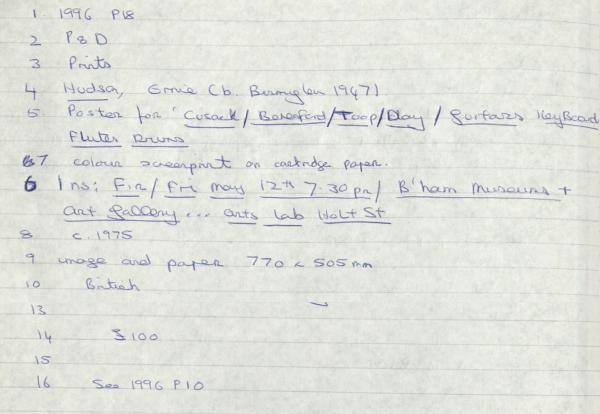 1 1996 P18
2 P&D
3 Prints
4 Hudson, Ernie (b. Birmingham 1947)
5 Poster for 'Cusack/Beresford/Toop/Day/Guitars Keyboard
Flutes Drums
7 colour screenprint on cartridge paper.
6 Ins: F.12/Fri May 12th 7.30 pm/B'ham Museums +
Art Gallery ... arts lab Holt St
8 c. 1975
9 image and paper 770 x 505 mm
10 British
13
14 $100
15
16 See 1996 P10